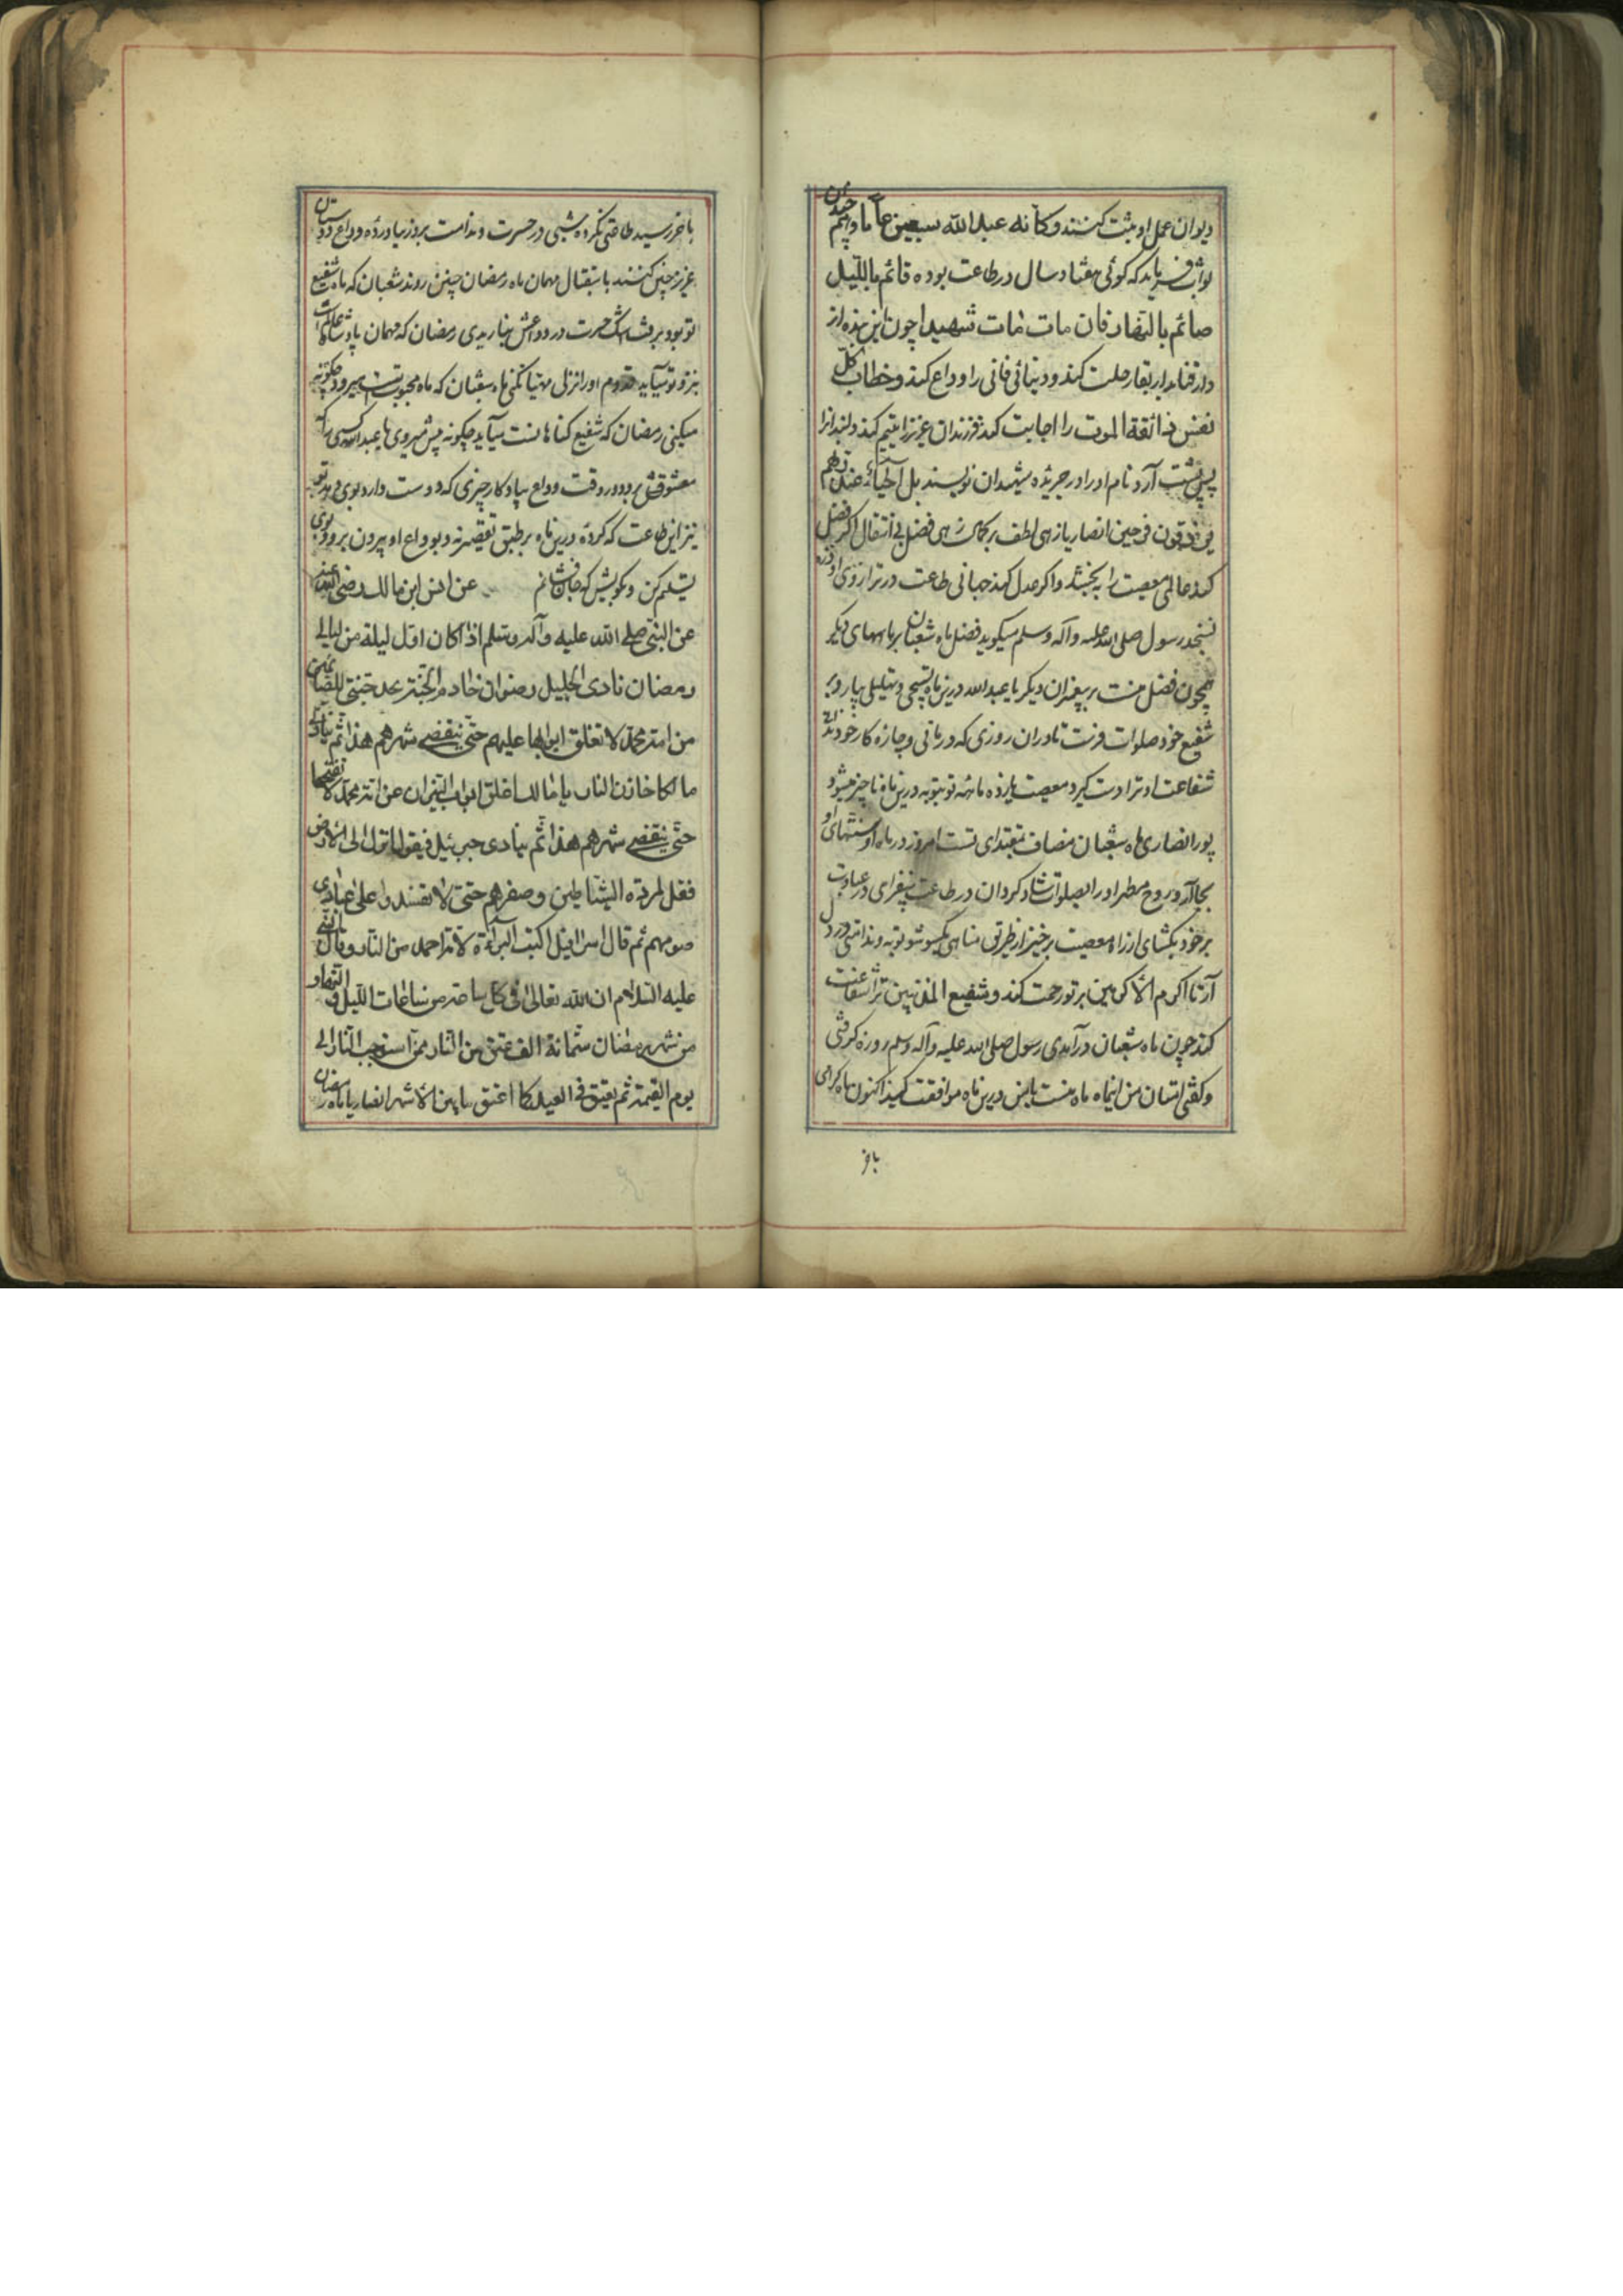 دیوان عمل او ثبت کنند و کانه عبد الله سبعین عاما و چندان
ثواب فرماید که گوئی هفتاد سال در طاعت بوده قائم باللیل
صائم بالنهار فان مات مات شهیدا چون این بنده از
دار فنا بدار بقا رحلت کند و دنیائی فانی را وداع کند و خطاب کل
نفس ذائقة الموت را اجابت کند فرزندان عزیز را یتیم کند و
پس پشت آرد نام او را در جریده شهیدان نویسند بل احیاء عند ربهم
یرزقون فرحین انصاریا زهی لطف بر کمال زهی فضل بی انتقال اگر فضل
کند عالمی معصیت را به بخشد و اگر عدل کند جهانی طاعت در ترازوی او ذره
نسنجد رسول صلی الله علیه و آله و سلم میگوید فضل ماه شعبان بر ماههای دیگر
همچون فضل منست بر پیغمبران دیگر یا عبد الله درین ماه تسبیحی و تهلیلی بیار و بر
شفیع خود صلوات فرست تا در ان روزی که درمانی و چاره کار خود ندانی
شفاعت او ترا دست گیرد معصیت یازده ماهه تو بتوبه درین ماه ناچیز میشود
پور انصاری ماه شعبان مضاف بمقتدای تست امروز در ماه او سنتهای او
بجا آر و روح مطهر او را بصلوات شاد گردان در طاعت بیفزای در عبادت
بر خود بگشای از راه معصیت برخیز از طریق مناهی یکسو شو توبه و ندامتی در دل
آر تا اکرم الاکرمین بر تو رحمت کند و شفیع المذنبین ترا شفاعت
کند چون ماه شعبان درآمدی رسول صلی الله علیه و آله وسلم روزه گرفتی
و گفتی امتان من اینماه ماه منست با من درین ماه موافقت کنید اکنون ماه گرامی
بآخر
بآخر رسید طاعتی نکرده شبی در حسرت و ندامت بروز نیاورده وداع دوستان
عزیز چنین کنند باستقبال مهمان ماه رمضان چنین روند شعبان که ماه شفیع
تو بود برفت اشک حسرت در وداعش نباریدی رمضان که مهمان پادشاه
بنزد تو میآید قدوم او را نزل مهیا نکنی ماه شعبان که ماه محبوب تست میرود چگونه
میکنی رمضان که شفیع گناهانست میآید چگونه پیش میروی یا عبد الله کسی را که
معشوقش برود در وقت وداع بیادگار چیزی که دوست دارد بوی دهد تو
نیز این طاعت که کرده درین ماه بر طبق نه و بوداع او بیرون برو و بوی
تسلیم کن و بگویش که جان فشانم عن انس ابن مالک رضی الله عنه
عن النبی صلی الله علیه و آله و سلم اذا کان اول لیلة من لیالی
رمضان نادی الجلیل رضوان خادم الجنة نجد جنتی للصائمین
من امة محمد لا تغلق ابوابها علیهم حتی ینقضی شهرهم هذا ثم ینادی
مالکا خازن النار یا مالک اغلق ابواب النیران عن امة محمد لا تفتحها
حتی ینقضی شهرهم هذا ثم ینادی جبرئیل فیقول انزل الی الارض
فغل مردة الشیاطین و صفرهم حتی لا تفسدوا علی عبادی
صومهم ثم قال اسرافیل اکتب البراءة لامة احمد من النار و قال النبی
علیه السلام ان الله تعالی فی کل ساعة من ساعات اللیل و النهار
من شهر رمضان ستمائة الف عتیق من النار ممن استوجب النار الی
یوم القیمة ثم یعتق فی العید کما اعتق ما بین الاشهر انصاریا ماه رمضان